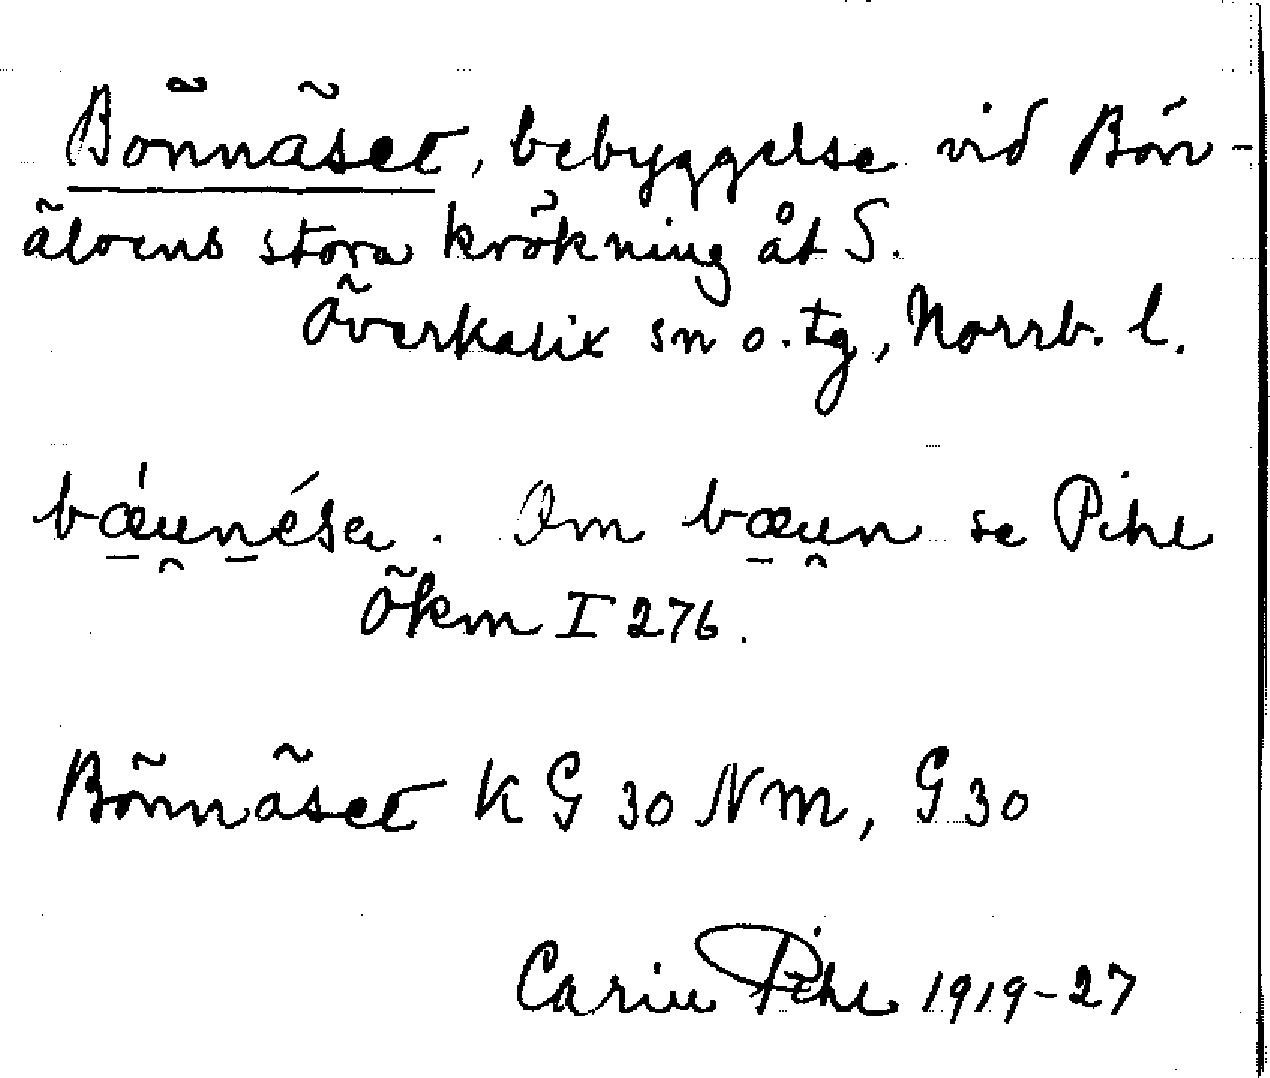 Bönnäset, bebyggelse vid Bön-
älvens stora krökning åt S.
Överkalix sn o. tg, Norrb. l.
bǽu̯nése. Om bæu̯n se Pihl
Ökm I 276.
Bönnäset K G 30 NM, G 30
Carin Pihl 1919-27